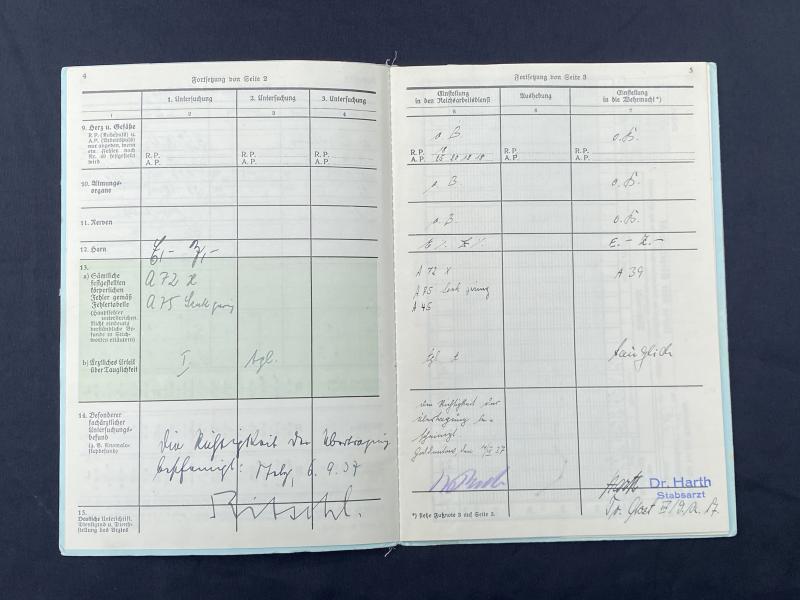 4
Fortsetzung von Seite 2
1. Untersuchung
2. Untersuchung
3. Untersuchung
1
2
3
4
9. Herz u. Gefäße
R.P. (Ruhepuls) u.
A.P. (Arbeitspuls)
nur angeben, wenn
ein Fehler nach
Nr. 40 festgestellt
wird
R.P.
A.P.
R.P.
A.P.
R.P.
A.P.
10. Atmungs-
organe
11. Nerven
12. Harn
E,- Z,-
13.
a) Sämtliche
festgestellten
körperlichen
Fehler gemäß
Fehlertabelle
(Handfehler
unterstreichen.
Nicht eindeutig
verständliche Be-
funde in Stich-
worten erläutern)
A 72 x
A 75 Senkspreiz
b) Ärztliches Urteil
über Tauglichkeit
I
tgl.
14. Besonderer
fachärztlicher
Untersuchungs-
befund
(z. B. Anomalo-
skopbefunde)
Die Richtigkeit der Übertragung
bescheinigt: 6.9.37
Ritschl.
15.
Deutliche Unterschrift,
Dienstgrad u. Dienst-
stellung des Arztes
5
Fortsetzung von Seite 3
Einstellung
in den Reichsarbeitsdienst
Aushebung
Einstellung
in die Wehrmacht*)
5
6
7
o. B.
R.P.
A.P.
R.P.
A.P.
o. B.
R.P.
A.P.
o. B.
o. B.
o. B.
o. B.
E.- Z.-
A 72 x
A 75
A 45
A 39
tgl.
tauglich
Die Richtigkeit der
Übertragung be-
scheinigt
37
Harth
Dr. Harth
Stabsarzt
*) siehe Fußnote 3 auf Seite 2.